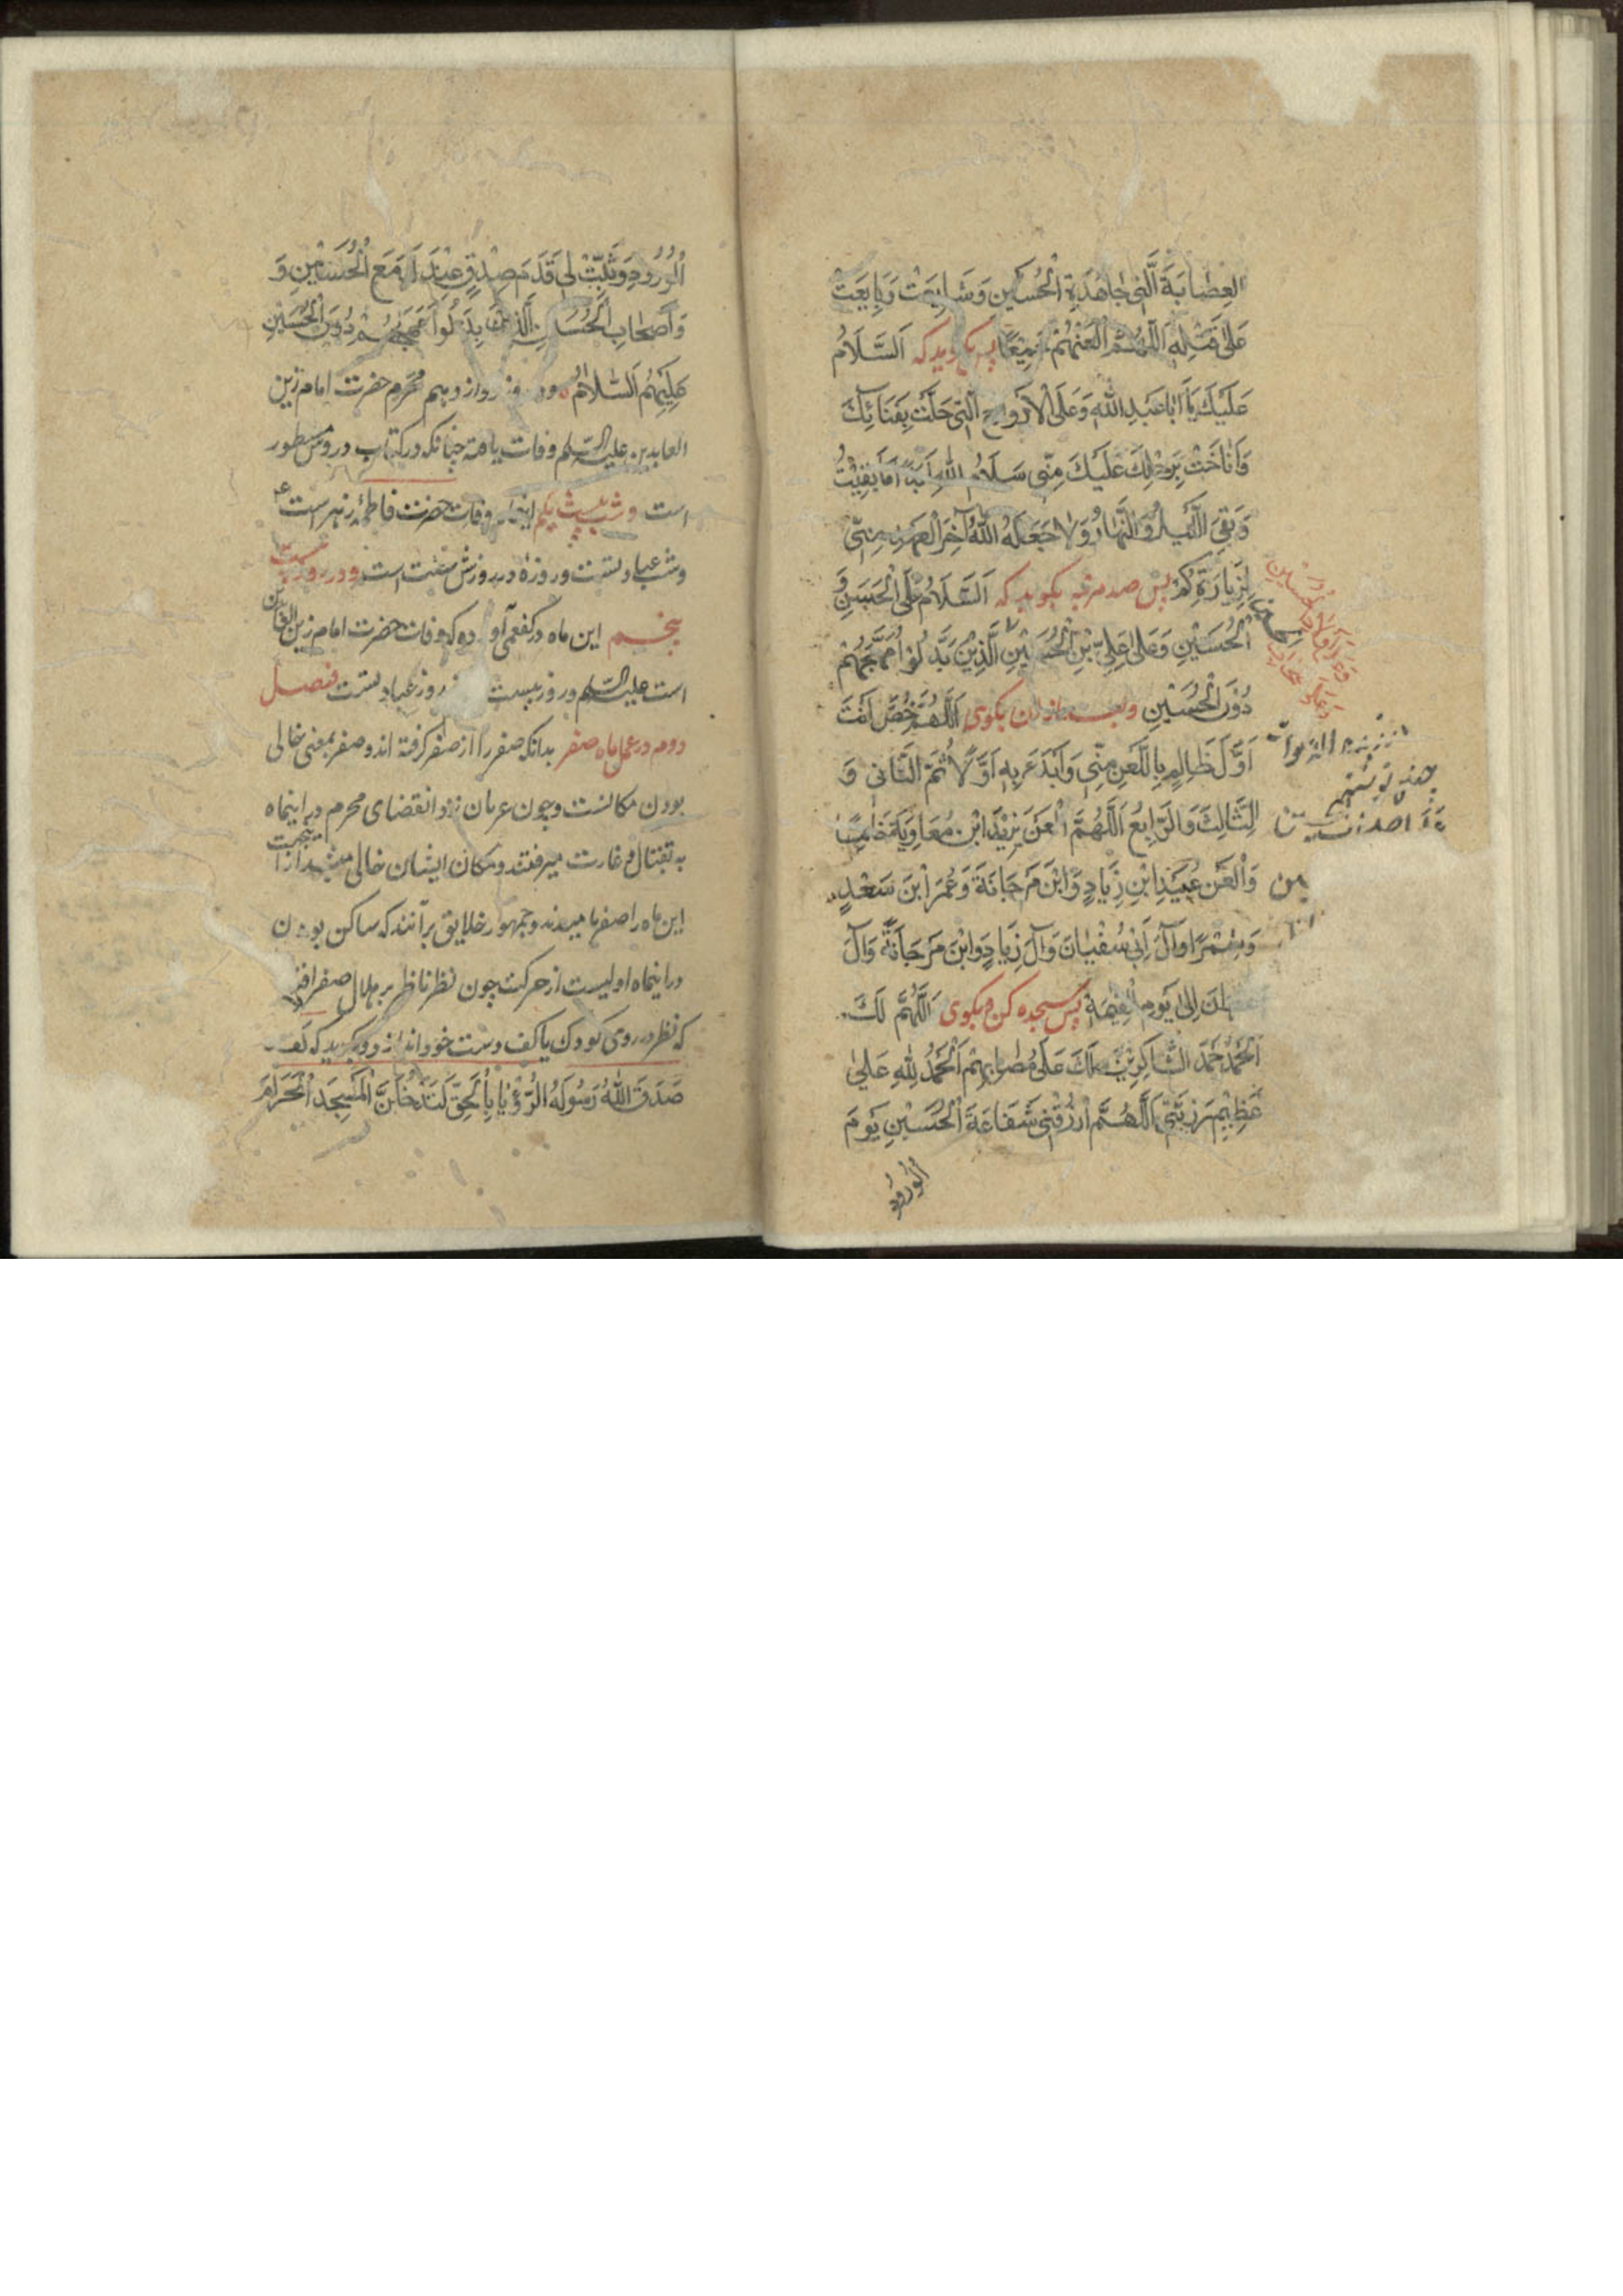 العِصٰابَةَ الَّتی جٰاهَدَةِ الْحُسَیْنِ وَشٰایَعَتْ وَبٰایَعَتْ
عَلیٰ قَتْلِهِ اَللّٰهُمَّ الْعَنْهُمْ جَمیٖعًا پس بگوید که اَلسَّلٰامُ
عَلَیْكَ یٰا اَبٰا عَبْدِ اللّٰهِ وَعَلَی الْاَرْوٰاحِ الَّتی حَلَّتْ بِفَنٰائِكَ
وَاَنٰاخَتْ بِرَحْلِكَ عَلَیْكَ مِنّی سَلٰامُ اللّٰهِ اَبَدًا مٰا بَقِیْتُ
وَبَقِیَ اللَّیْلُ وَالنَّهٰارُ وَلٰا جَعَلَهُ اللّٰهُ آخِرَ الْعَهْدِ مِنّی
لِزِیٰارَتِكُمْ پس صد مرتبه بگوید که اَلسَّلٰامُ عَلَی الْحُسَیْنِ وَ
الْحُسَیْنِ وَعَلیٰ عَلِیِّ بْنِ الْحُسَیْنِ الَّذِیْنَ بَذَلُوْا مُهَجَهُمْ
دُوْنَ الْحُسَیْنِ وبعد ازان بگوی اَللّٰهُمَّ خُصَّ اَنْتَ
اَوَّلَ ظٰالِمٍ بِاللَّعْنِ مِنّی وَابْدَءْ بِهِ اَوَّلًا ثُمَّ الثّٰانی وَ
الثّٰالِثَ وَالرّٰابِعَ اَللّٰهُمَّ الْعَنْ یَزِیْدَ ابْنِ مُعٰاوِیَةَ خٰامِسًا
وَالْعَنْ عُبَیْدَ ابْنِ زِیٰادٍ وَابْنَ مَرْجٰانَةَ وَعُمَرَ ابْنَ سَعْدٍ
وَشِمْرًا وَآلَ اَبی سُفْیٰانَ وَآلَ زِیٰادٍ وَابْنَ مَرْجٰانَةَ وَآلَ
اِلیٰ یَوْمِ الْقِیٰمَةِ پس سجده کن و بگوی اَللّٰهُمَّ لَكَ
الْحَمْدُ حَمْدَ الشّٰاكِرِیْنَ لَكَ عَلیٰ مُصٰابِهِمْ اَلْحَمْدُ لِلّٰهِ عَلیٰ
عَظِیْمِ رَزِیَّتی اَللّٰهُمَّ ارْزُقْنی شَفٰاعَةَ الْحُسَیْنِ یَوْمَ
الْوُرُوْدِ
الْوُرُوْدِ وَثَبِّتْ لی قَدَمَ صِدْقٍ عِنْدَكَ مَعَ الْحُسَیْنِ وَ
وَاَصْحٰابِ الْحُسَیْنِ الَّذِیْنَ بَذَلُوْا مُهَجَهُمْ دُوْنَ الْحُسَیْنِ
عَلَیْهِمُ السَّلٰامُ ودر روز دوازدهم محرم حضرت امام زین
العابدین علیه السلم وفات یافته چنانکه در کتاب دروس مسطور
است وشب بیست یکم اینماه وفات حضرت فاطمه زهراست ع
وشب عبادتست وروزه در روزش سنت است ودر روز بیست
پنجم این ماه در کفعمی آورده که وفات حضرت امام زین العابدین
است علیه السلم وروز بیست روز عبادتست فصل
دوم در عمل ماه صفر بدانکه صفر را از صفر گرفته اند وصفر بمعنی خالی
بودن مکانست وچون عربان نزد انقضای محرم در اینماه
به قتال و غارت میرفتند ومکان ایشان خالی میشد از اینجهت
این ماه را صفر نامیدند وجمهور خلایق برآنند که ساکن بودن
در اینماه اولیست از حرکت چون نظر ناظر بر هلال صفر افتد
که نظر در روی کودک یا کف دست خود اندازد و بگوید که لقد
صَدَقَ اللّٰهُ رَسُوْلَهُ الرُّؤْیٰا بِالْحَقِّ لَتَدْخُلُنَّ الْمَسْجِدَ الْحَرٰامَ